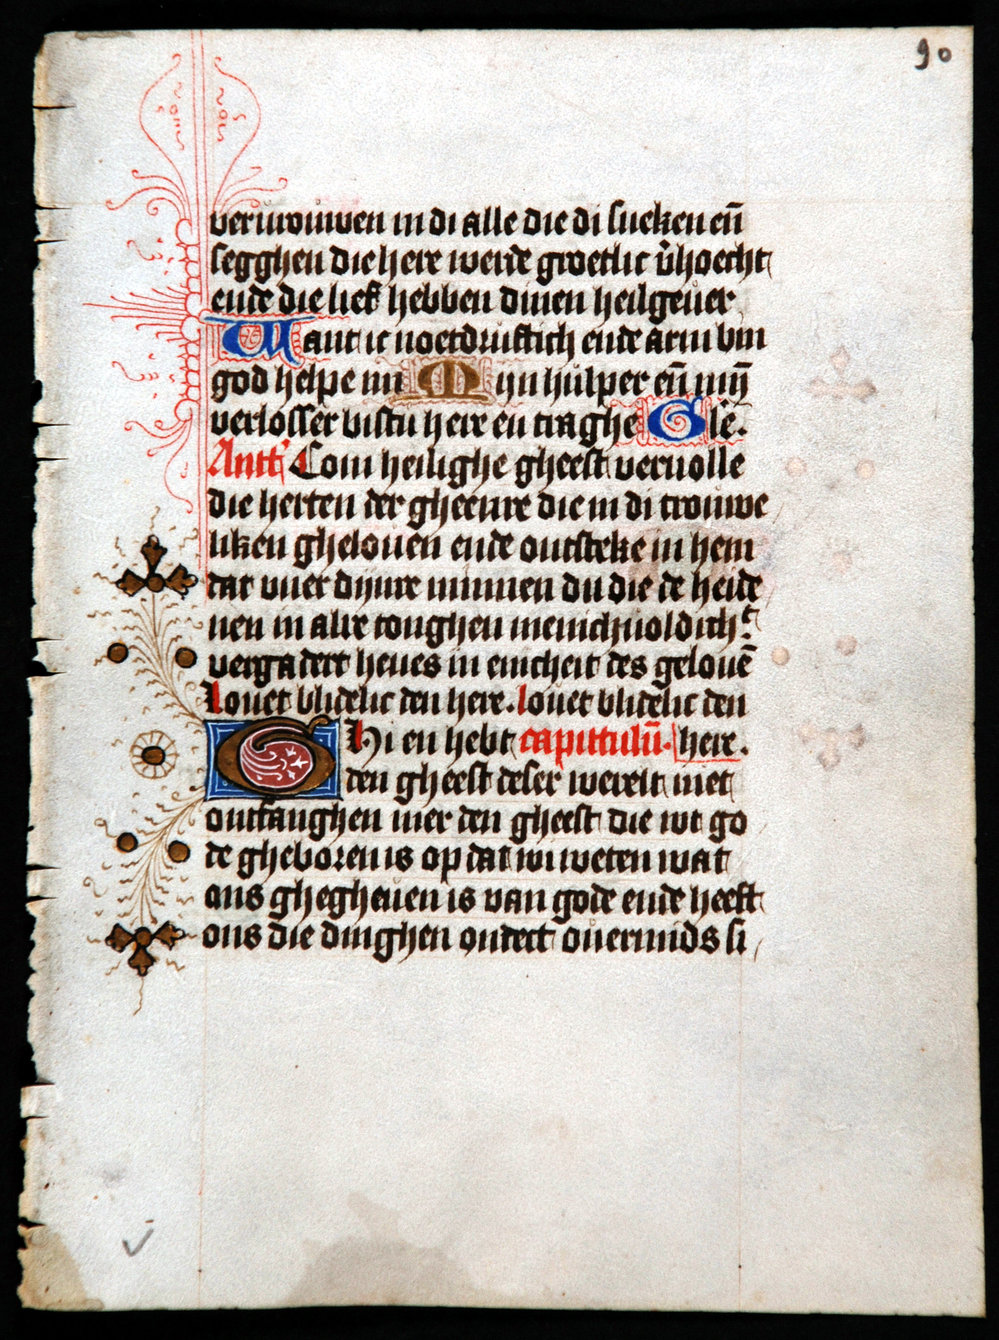 90
vervrouwen in di alle die di sueken eñ
segghen die here werde groetlic v̄hoecht
ende die lief hebben dinen heilgeuer
Want ic noetdruftich ende arm bin
god helpe mi Myn hulper eñ mīj
verlosser bistu here en traghe Gle.
Anth Com heilighe gheest veruolle
die herten der gheenre die in di trouwe
liken ghelouen ende ontsteke in hem
dat vuer dijnre minnen du die de heide
nen in alre tonghen menichuoldicht
vergadert heues in eincheit des gelouē
louet blidelic den here. louet blidelic den
Ghi en hebt capittulū. here.
den gheest deser werelt niet
ontfanghen mer den gheest die wt go
de gheboren is op dat wi weten wat
ons ghegheuen is van gode ende heeft
ons die dinghen ontect ouermids si